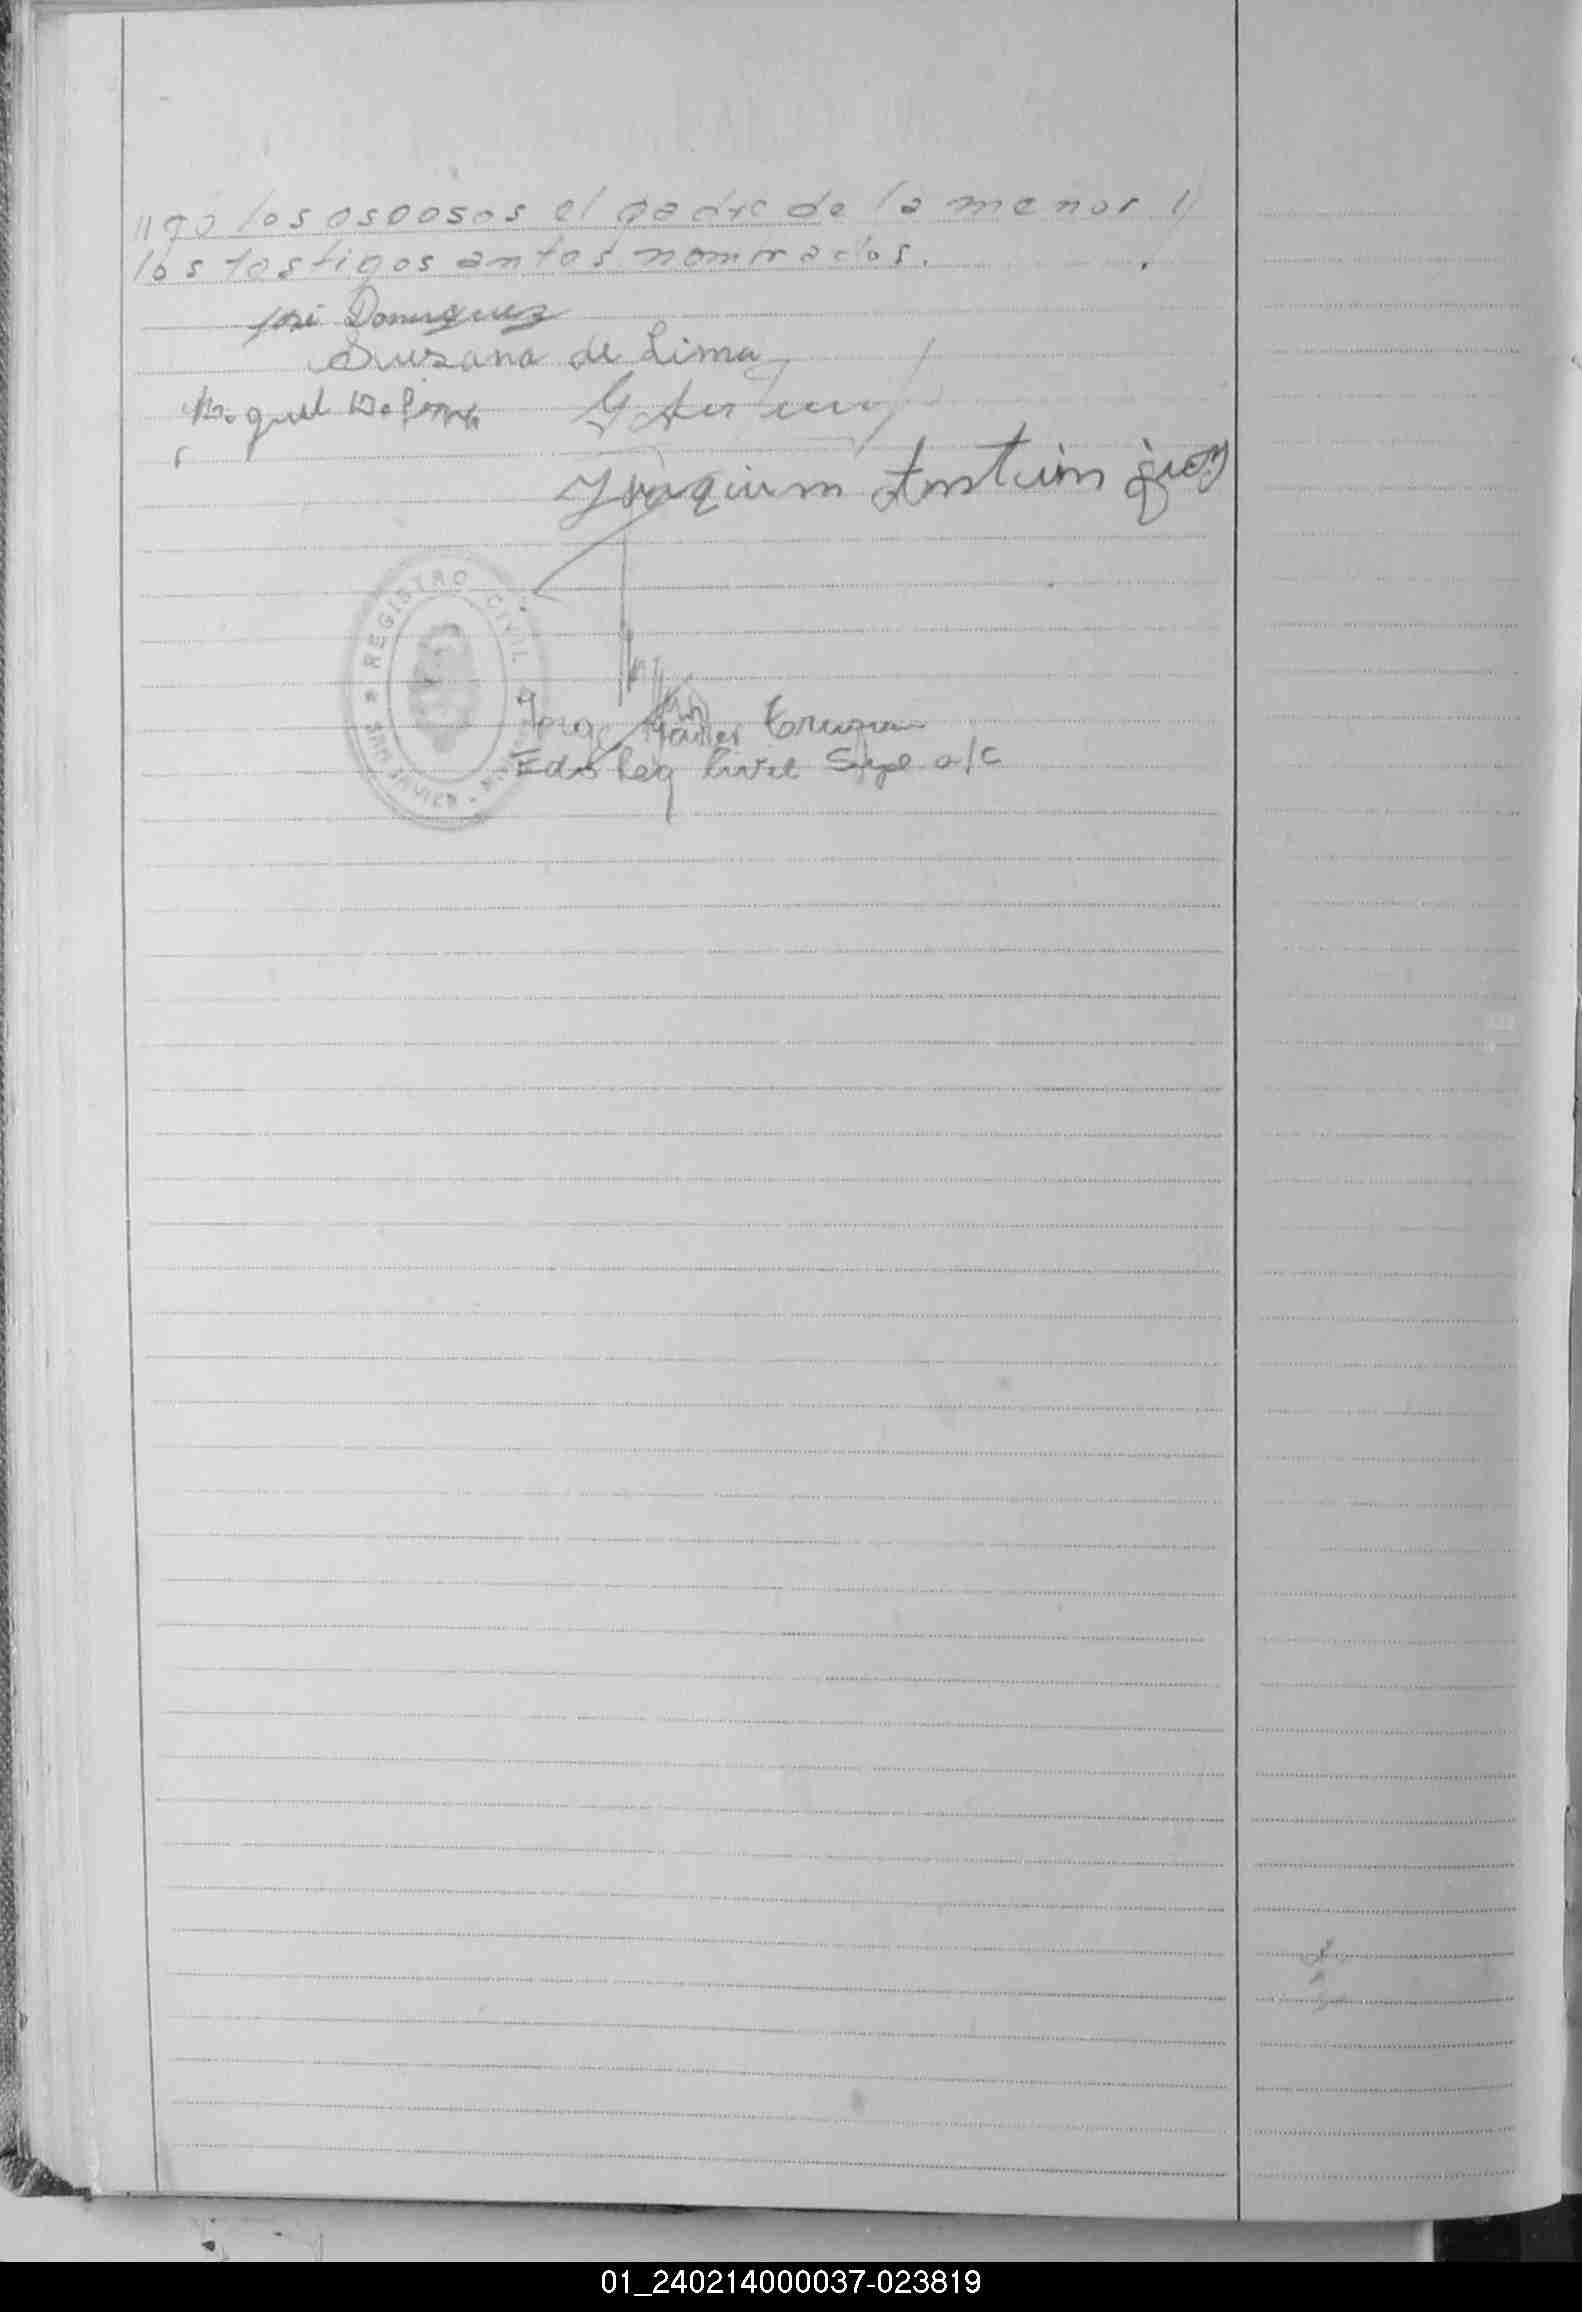 //go los esposos el padre de la menor y
los testigos antes nombrados.
José Dominguez
Susana de Lima
Miguel De Lima
Joaquim
REGISTRO CIVIL
SAN JAVIER
Jorge Javier
Edo Reg Civil Supl a/c
01_240214000037-023819